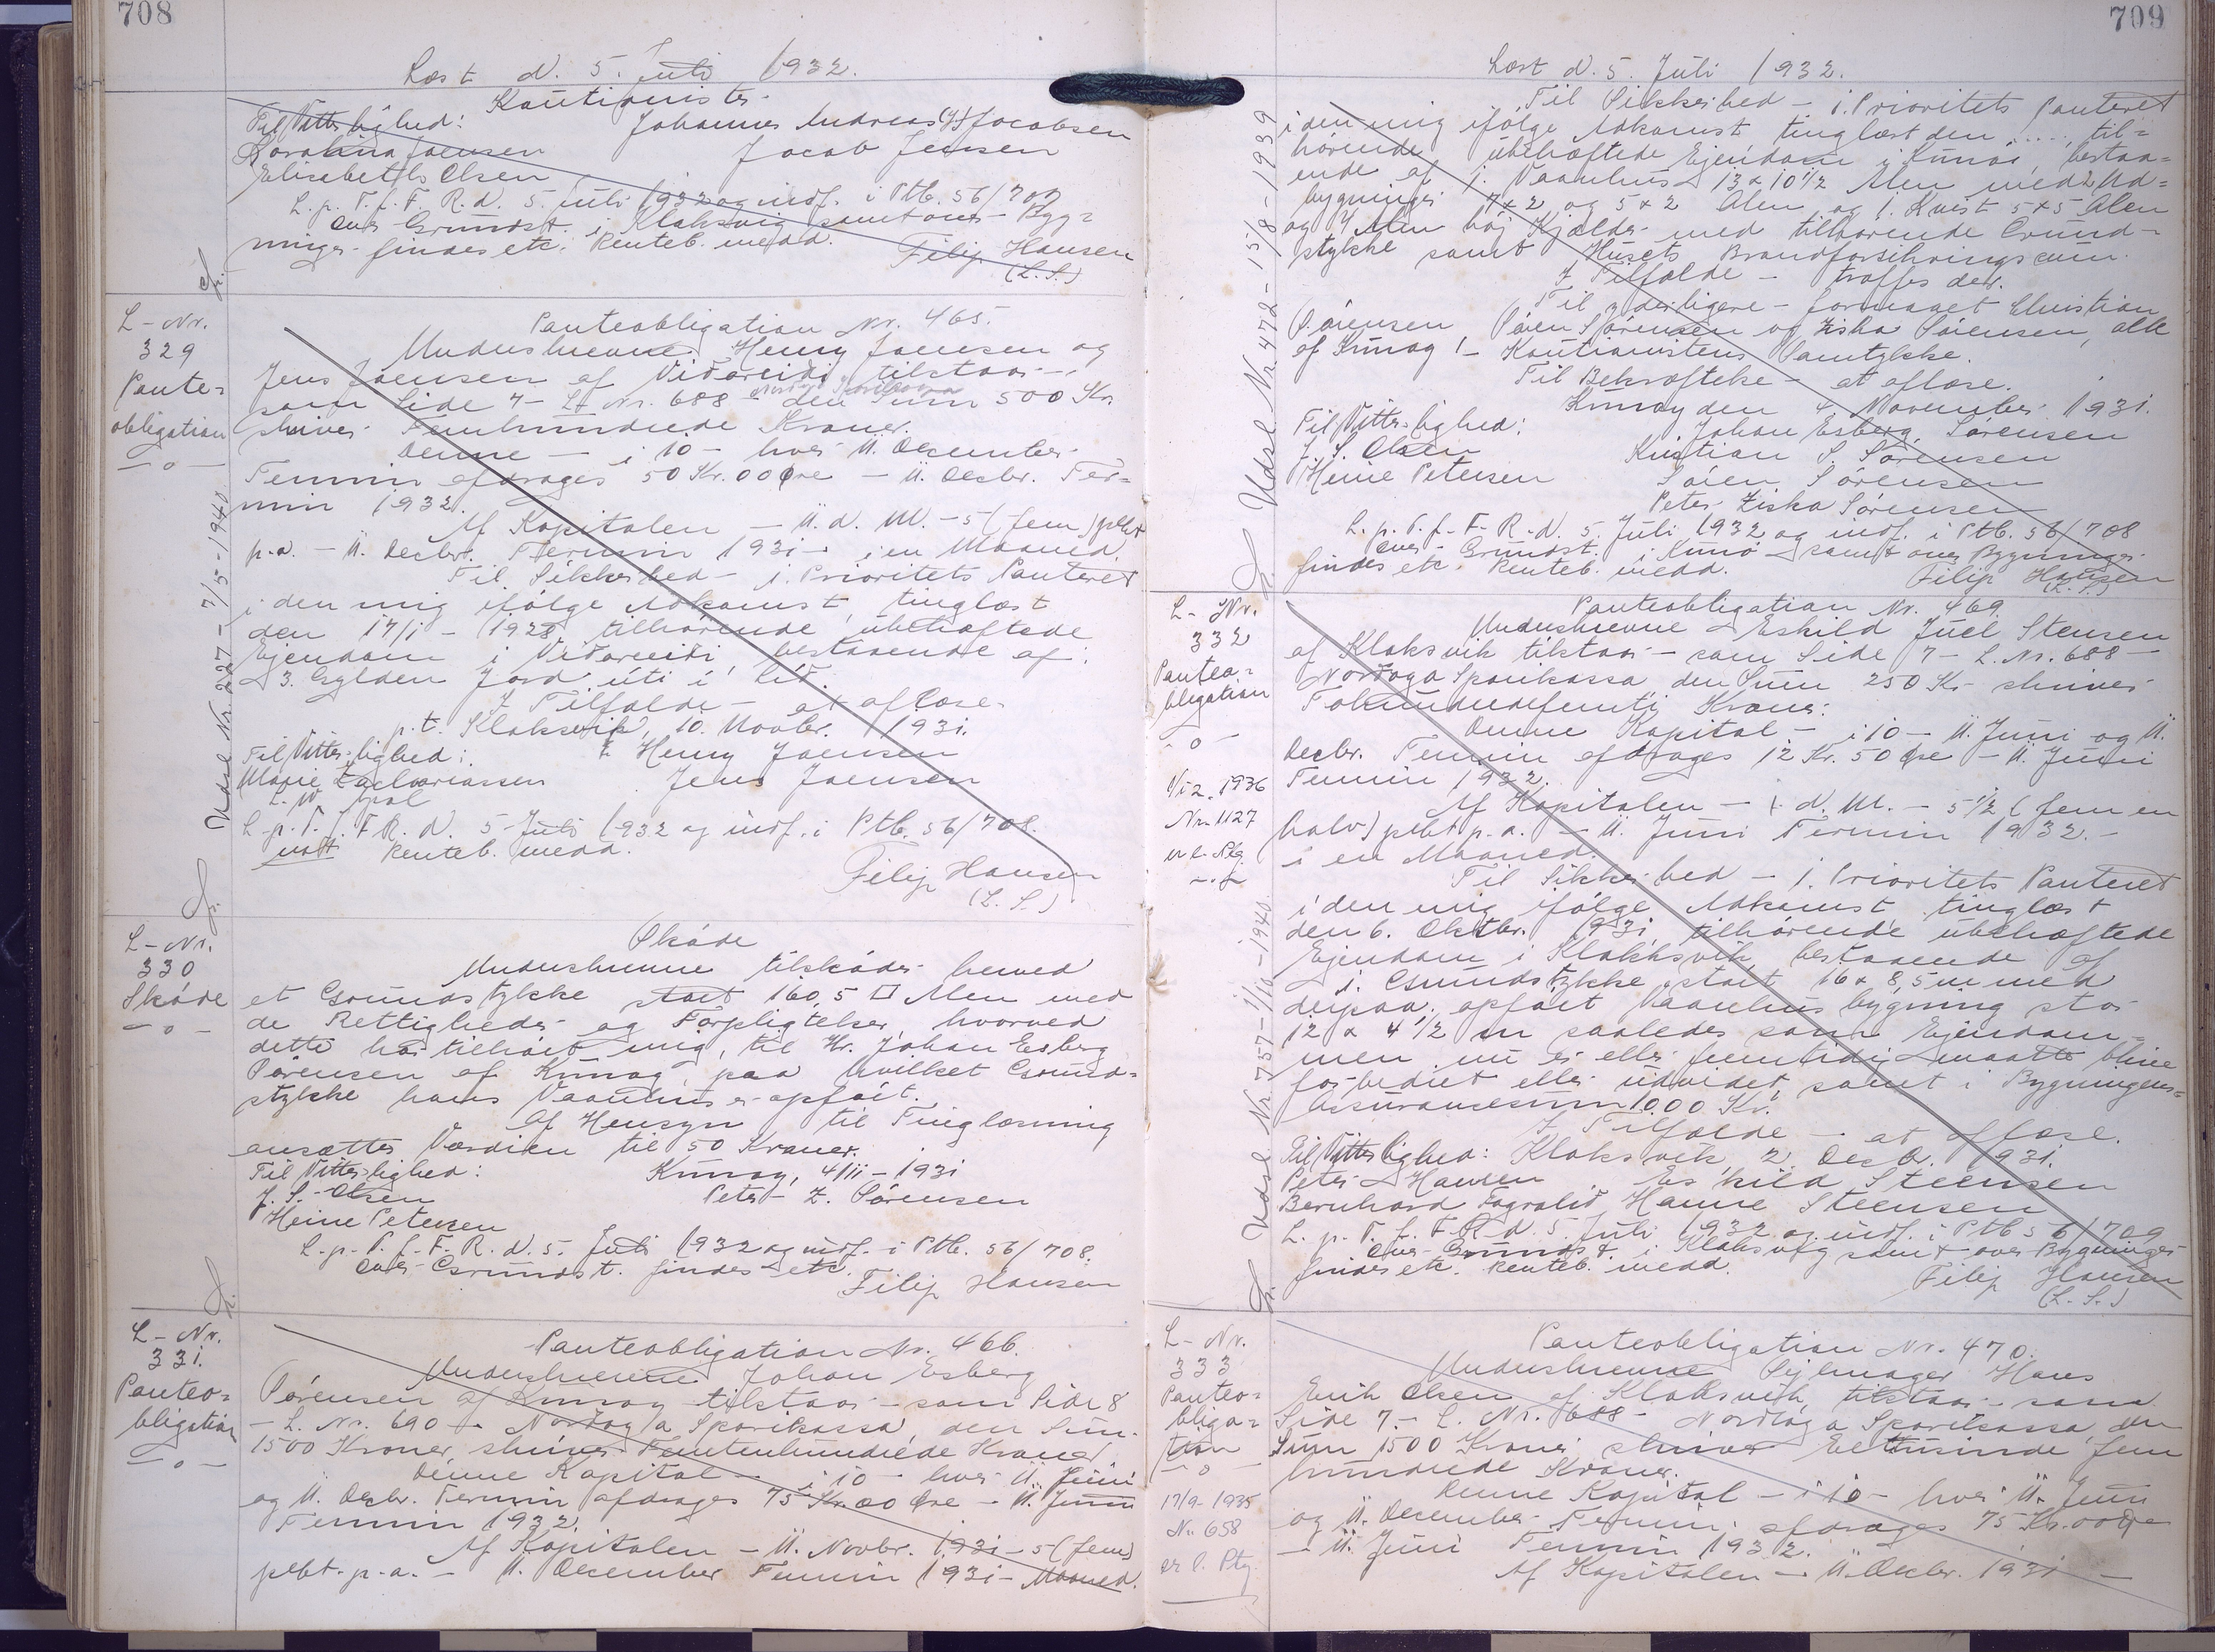 708
Læst d. 5. Juli 1932.
Kautionister
Til Vitterlighed: Johannes Andreas (J) Jacobsen
Joensen Jacob Jensen
Elisabeth Olsen
L. p. T. f. F. R. d. 5. Juli 1932 og indf. i Ptb. 56/707
over Grundst. i Klaksvig samt over Byg=
ninger findes etc. Renteb. medd. Filip Hansen
(L.S.)
L-Nr.
329
Pante=
obligation
—o—
Udsl Nr 227 - 7/5-1940
Panteobligation Nr. 465.
Underskrevne Henry Joensen og
Jens Joensen af Viðareiði tilstaar —
som Side 7 — L. Nr. 688 — Norðoya Sparikassa den Sum 500 Kr.
skriver Femhundrede Kroner.
Denne — i 10 — hver 11. December
Termin afdrages 50 Kr. 00 Øre — 11. Decbr. Ter=
min 1932.
Af Kapitalen — 11. d. M. — 5 (fem) pCt
p.a. — 11. Decbr. Termin 1931 — i en Maaned.
Til Sikkerhed — 1. Prioritets Panteret
i den mig ifølge Adkomst tinglæst
den 17/1 - 1928 tilhørende ubehæftede
Ejendom i Viðareiði, bestaaende af:
3. Gylden Jord úti í Lið.
I Tilfælde — at aflæse.
p.t. Klaksvik, 10. Novbr. 1931.
Til Vitterlighed: Henry Joensen
Marie Zachariassen Jens Joensen
L. p. T. f. F. R. d. 5 Juli 1932 og indf. i Ptb. 56/708.
Renteb. medd.
Filip Hansen
(L.S.)
L-Nr.
330
Skøde
—o—
Skøde
Underskrevne tilskøder herved
et Grundstykke stort 160,5 □ Alen med
de Rettigheder og Forpligtelser, hvorved
dette har tilhørt mig, til Hr. Johan Esberg
Sørensen af Kunoy, paa hvilket Grund=
stykke hans Vaanhus er opført.
Af Hensyn til Tinglæsning
ansættes Værdien til 50 Kroner.
Til Vitterlighed: Kunoy, 4/11 - 1931
J. S. Olsen Peter Z. Sørensen
Heine Petersen
L. p. T. f. F. R. d. 5. Juli 1932 og indf. i Ptb. 56/708.
over Grundst. findes etc.
Filip Hansen
L-Nr.
331.
Panteo=
bligation
—o—
Panteobligation Nr. 466.
Underskrevne Johan Esberg
Sørensen af Kunoy tilstaar — som Side 8
— L. Nr. 690 — Norðoya Sparikassa, den Sum
1500 Kroner, skriver Femtenhundrede Kroner
Denne Kapital — i 10 — hver 11. Juni
og 11. Decbr. Termin afdrages 75 Kr. 00 Øre — 11. Juni
Termin 1932.
Af Kapitalen — 11. Novbr. 1931 — 5 (fem)
pCt. p.a. — 11. December Termin 1931 — Maaned.
709
Læst d. 5. Juli 1932.
Udsl Nr 472 - 15/8-1939
Til Sikkerhed — 1. Prioritets Panteret
i den mig ifølge Adkomst tinglæst den ..... til=
hørende ubehæftede Ejendom i Kunoi, bestaa=
ende af 1. Vaanhus 13 x 10 1/2 Alen med 2 Ud=
bygninger 7 x 2 og 5 x 2 Alen og 1. Kvist 5 x 5 Alen
og 4 Alen høj Kjælder med tilhørende Grund=
stykke samt Husets Brandforsikringssum.
I Tilfælde — træffes der.
Til yderligere — formaaet Christian
Sørensen, Søren Sørensen og Ziska Sørensen, alle
af Kunoy! — Kautionistens Samtykke.
Til Bekræftelse — at aflæse.
Kunoy den 4. November 1931.
Til Vitterlighed: Johan Esberg Sørensen
J. S. Olsen Kristian S. Sørensen
Heine Petersen Søren Sørensen
Peter Ziska Sørensen
L. p. T. f. F. R. d. 5. Juli 1932 og indf. i Ptb. 56/708
over Grundst. i Kunø samt over Bygninger
findes etc. Renteb. medd. Filip Hansen
(L.S.)
L-Nr.
332
Panteo=
bligation
—o—
1936
Nr. 1127
Udsl Nr 757 - 1/10-1940
Panteobligation Nr. 469.
Underskrevne Eskild Juel Stensen
af Klaksvik tilstaar — som Side 7 — L. Nr. 688 —
Norðoya Sparikassa den Sum 250 Kr. skriver
Tohundredefemti Kroner:
Denne Kapital — i 10 — 11. Juni og 11.
Decbr. Termin afdrages 12 Kr. 50 Øre — 11. Juni
Termin 1932.
Af Kapitalen — d. M. — 5 1/2 (fem en
halv) pCt p.a. — 11. Juni Termin 1932. —
i en Maaned.
Til Sikkerhed — 1. Prioritets Panteret
i den mig ifølge Adkomst tinglæst
den 6. Oktbr. 1931 tilhørende ubehæftede
Ejendom i Klaksvik bestaaende af
1. Grundstykke stort 16 x 8,5 m med
derpaa opført Vaanhusbygning stor
12 x 4 1/2 m saaledes som Ejendom=
men nu er eller fremtidig maatte blive
forbedret eller udvidet samt i Bygningens=
Assurancesum 1000 Kr.
I Tilfælde — at aflæse.
Til Vitterlighed: Klaksvik, 2. Decb. 1931.
Peter Hansen Eskild Steensen
Bernhard Fagralið Hanne Steensen
L. p. T. f. F. R. d. 5. Juli 1932 og indf. i Ptb 56/709
over Grundst. i Klaksvig samt over Bygninger
findes etc. Renteb. medd. Filip Hansen
(L.S.)
L-Nr.
333
Panteo=
bliga=
tion
—o—
17/9-1935
Nr. 658
Panteobligation Nr. 470.
Underskrevne Sejlmager Hans
Erik Olsen af Klaksvik tilstaar — som
Side 7 — L. Nr. 688 — Norðoya Sparikassa, den
Sum 1500 Kroner skriver Eettusinde fem
hundrede Kroner.
Denne Kapital — i 10 — hver 11. Juni
og 11. December Termin afdrages 75 Kr. 00 Øre
— 11. Juni Termin 1932.
Af Kapitalen — 11. Decbr. 1931 —